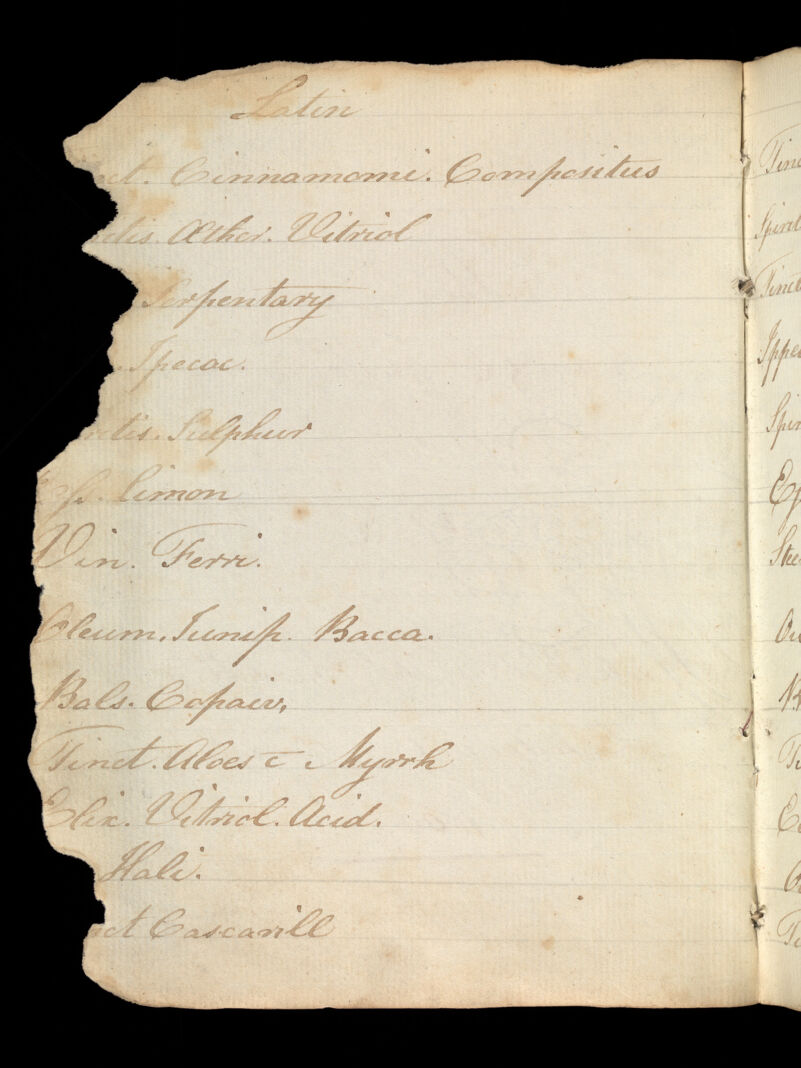 Latin
ct. Cinnamomi. Compositus
itis. Æther. Vitriol
Serpentary
Ipecac.
ritis. Sulphur
Ess. Limon
Vin. Ferri.
Oleum. Junip. Bacca.
Bals. Copaiv.
Tinct. Aloes c Myrrh
Elix. Vitriol. Acid.
Kali.
nct Cascarill
Tinc
Spirit
Tinct
Ippe
Spir
Ste